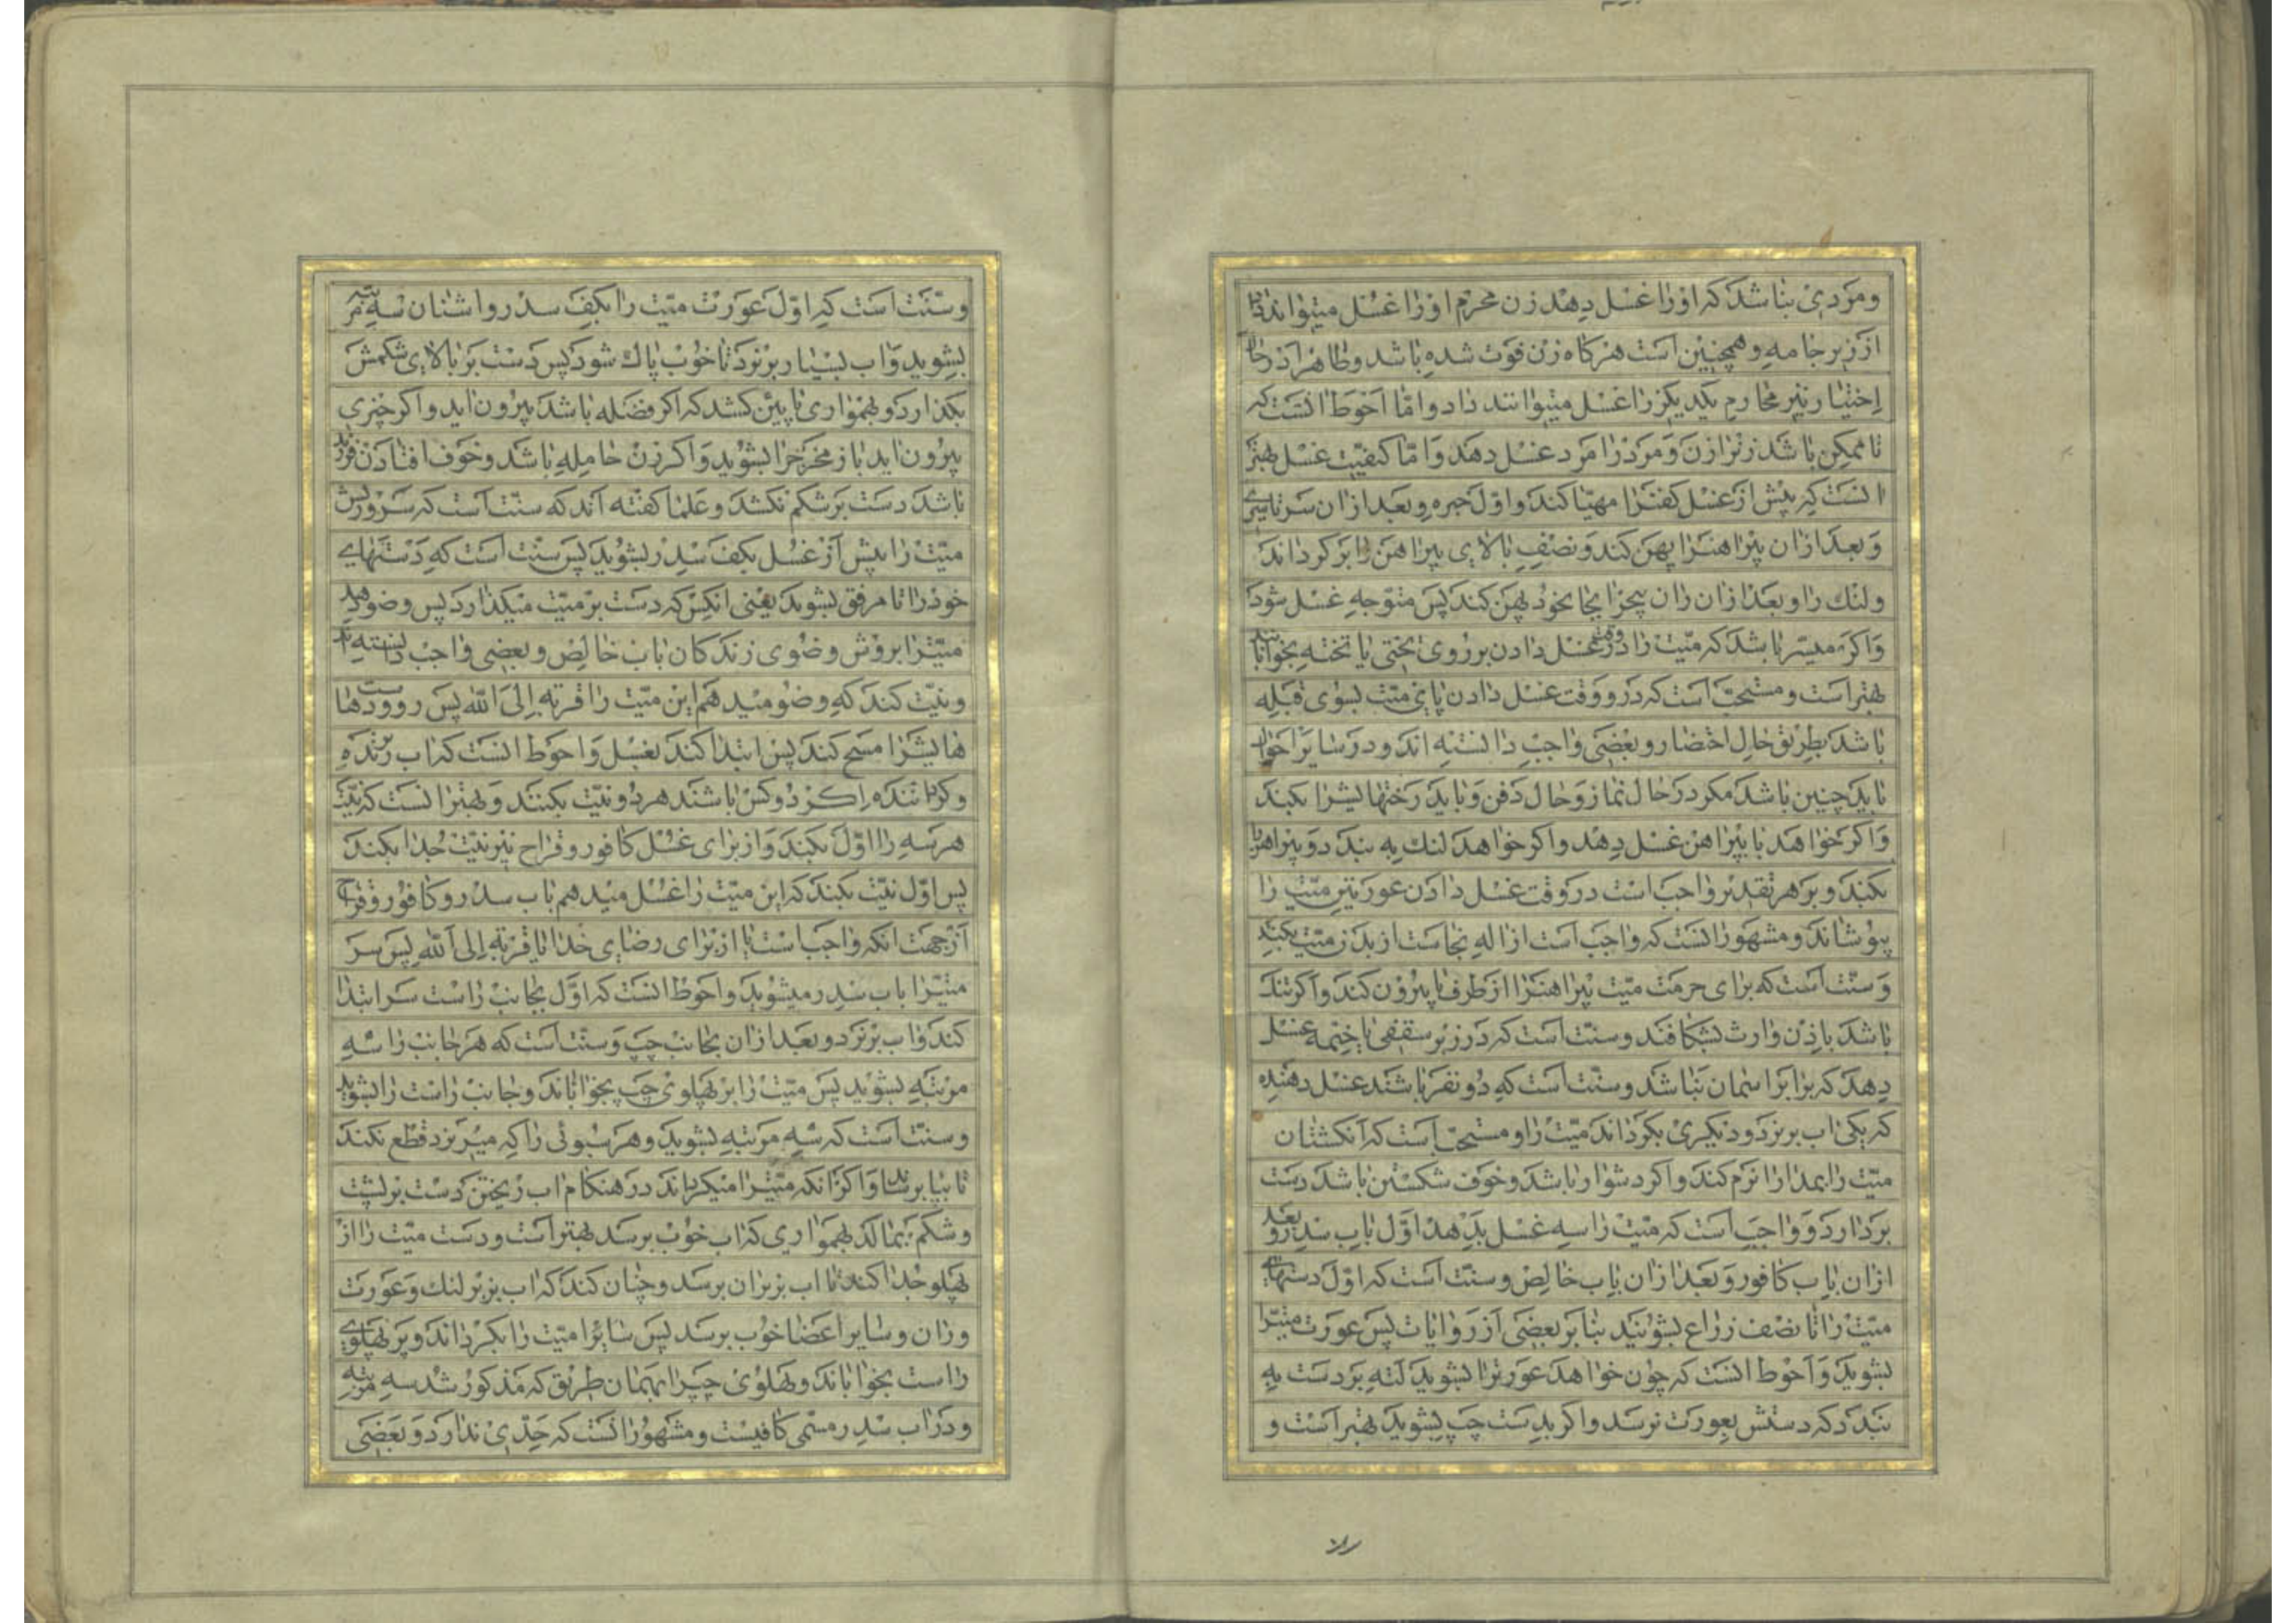 ومردی نباشد که اورا غسل دهد زن محرم اورا غسل میتواند داد
از زیر جامه وهمچنین است هرکاه زن فوت شده باشد وظاهرا در حال
اختیار نیز محارم یکدیکر را غسل میتوانند داد واما احوط انست که
تا ممکن باشد زنرا زن ومرد را مرد غسل دهد واما کیفیت غسل بهتر
انست که پیش از غسل کفنرا مهیا کند واول حبره وبعد ازان سرتاسری
وبعد ازان پیراهنرا پهن کند ونصف بالای پیراهن را بر کرداند
ولنك را وبعد ازان ران پیچرا بجا بخود پهن کند پس متوجه غسل شود
واکر میسر باشد که میت را در وقت غسل دادن بر روی تختی یا تخته بخوابانند
بهتر است ومستحب است که در وقت غسل دادن پای میت بسوی قبله
باشد بطریق حال احتضار وبعضی واجب دانسته اند ودر سایر احوال
باید چنین باشد مکر در حال نماز وحال دفن وباید رختهایشرا بکند
واکر خواهد با پیراهن غسل دهد واکر خواهد لنك به بندد وپیراهنرا
بکند وبر هر تقدیر واجب است در وقت غسل دادن عورتین میت را
پوشاند ومشهور انست که واجب است ازاله نجاست از بدن میت بکنند
وسنت است که برای حرمت میت پیراهنرا از طرف پا بیرون کند واکر تنك
باشد باذن وارث بشکافند وسنت است که در زیر سقفی یا خیمه غسل
دهد که برابر اسمان نباشد وسنت است که دو نفر باشند غسل دهنده
که یکی اب بریزد ودیکری بکرداند میت را ومستحب است که انکشتان
میت را بمدارا نرم کند واکر دشوار باشد وخوف شکستن باشد دست
بردارد وواجب است که میت را سه غسل بدهد اول باب سدر وبعد
ازان باب کافور وبعد ازان باب خالص وسنت است که اول دستهای
میت را تا نصف زراع بشویند بنا بر بعضی از روایات پس عورت میترا
بشوید واحوط انست که چون خواهد عورترا بشوید لته بر دست به
بندد که دستش بعورت نرسد واکر بدست چپ بشوید بهتر است و
وسنت است که اول عورت میت را بکف سدر واشنان سه مرتبه
بشوید واب بسیار بریزد تا خوب پاك شود پس دست بر بالای شکمش
بکذارد وبهمواری تا پایین کشد که اکر فضله باشد بیرون اید واکر چیزی
بیرون اید باز مخرجرا بشوید واکر زن حامله باشد وخوف افتادن فرزند
باشد دست بر شکم نکشد وعلما کفته اند که سنت است که سر وریش
میت را پیش از غسل بکف سدر بشوید پس سنت است که دستهای
خود را تا مرفق بشوید یعنی انکس که دست بر میت میکذارد پس وضو دهد
میترا بروش وضوی زندکان باب خالص وبعضی واجب دانسته اند
ونیت کند که وضو میدهم این میت را قربة الی الله پس رو ودستها
هایشرا مسح کند پس ابتدا کند بغسل واحوط انست که اب ریزنده
وکرداننده اکر دو کس باشند هر دو نیت بکنند وبهتر انست که نیت
هر سه را اول بکند واز برای غسل کافور وقراح نیز نیت جدا بکند
پس اول نیت بکند که این میت را غسل میدهم باب سدر وکافور وقراح
از جهت انکه واجب است یا از برای رضای خدا یا قربة الی الله پس سر
میترا باب سدر میشوید واحوط انست که اول بجانب راست سر ابتدا
کند واب بریزد وبعد ازان بجانب چپ وسنت است که هر جانب را سه
مرتبه بشوید پس میت را بر پهلوی چپ بخواباند وجانب راست را بشوید
وسنت است که سه مرتبه بشوید وهر سبوئی را که میریزد قطع نکند
تا بپا برساند واکر انکه میترا میکرداند در هنکام اب ریختن دست بر پشت
وشکم بمالد بهمواری که اب خوب برسد بهتر است ودست میت را از
پهلو جدا کند تا اب بزیر ان برسد وچنان کند که اب بزیر لنك وعورت
وران وسایر اعضا خوب برسد پس سایرا میت را بکرداند وبر پهلوی
راست بخواباند وپهلوی چپرا بهمان طریق که مذکور شد سه مرتبه
ودر اب سدر مسمی کافیست ومشهور انست که حدی ندارد وبعضی